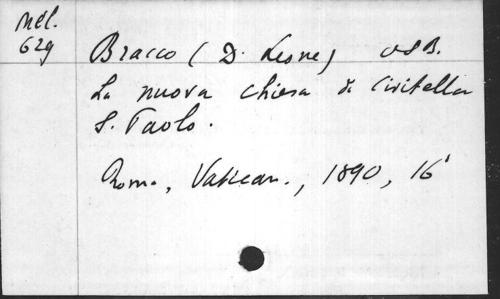 Mél.
629
Bracco (D. Leone) OSB.
La nuova chiesa di Civitella
S. Paolo.
Roma, Vatican., 1890, 16°